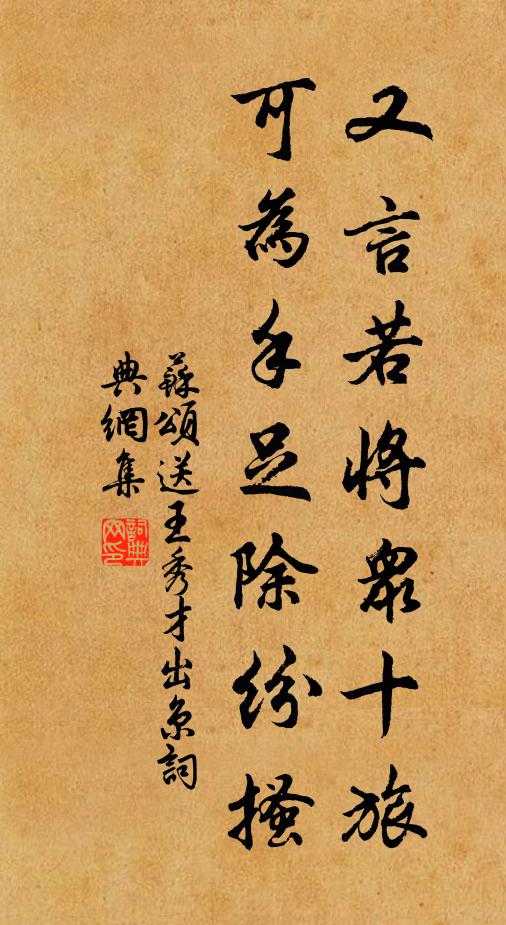 又言若將衆十旅
可為手足除紛搔
蘇頌送王秀才出京詞
典網集
詞典網印